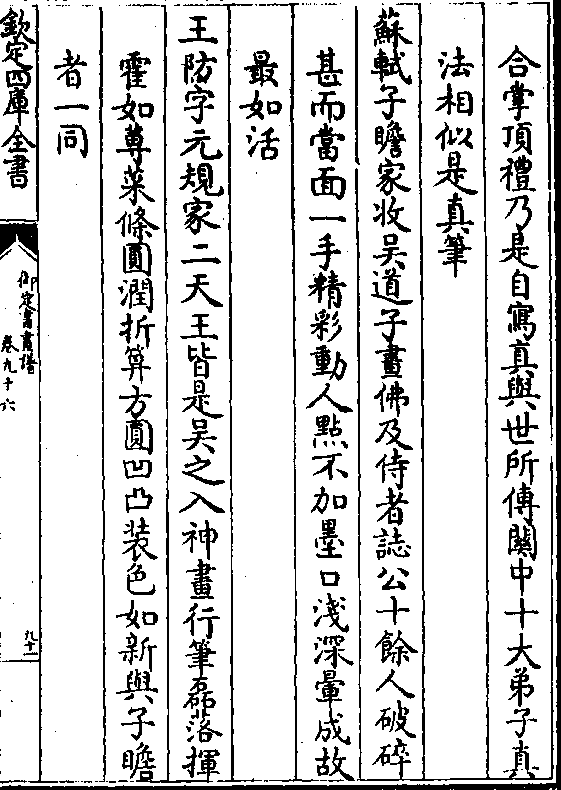 合掌頂禮乃是自寫真與世所傳闗中十大弟子真
法相似是真筆
蘇軾子瞻家收吳道子畫佛及侍者誌公十餘人破碎
甚而當面一手精彩動人點不加墨口淺深暈成故
最如活
王防字元規家二天王皆是吳之入神畫行筆磊落揮
霍如蓴菜條圓潤折算方圓凹凸装色如新與子瞻
者一同
欽定四庫全書
御定書畫譜
卷九十六
九十